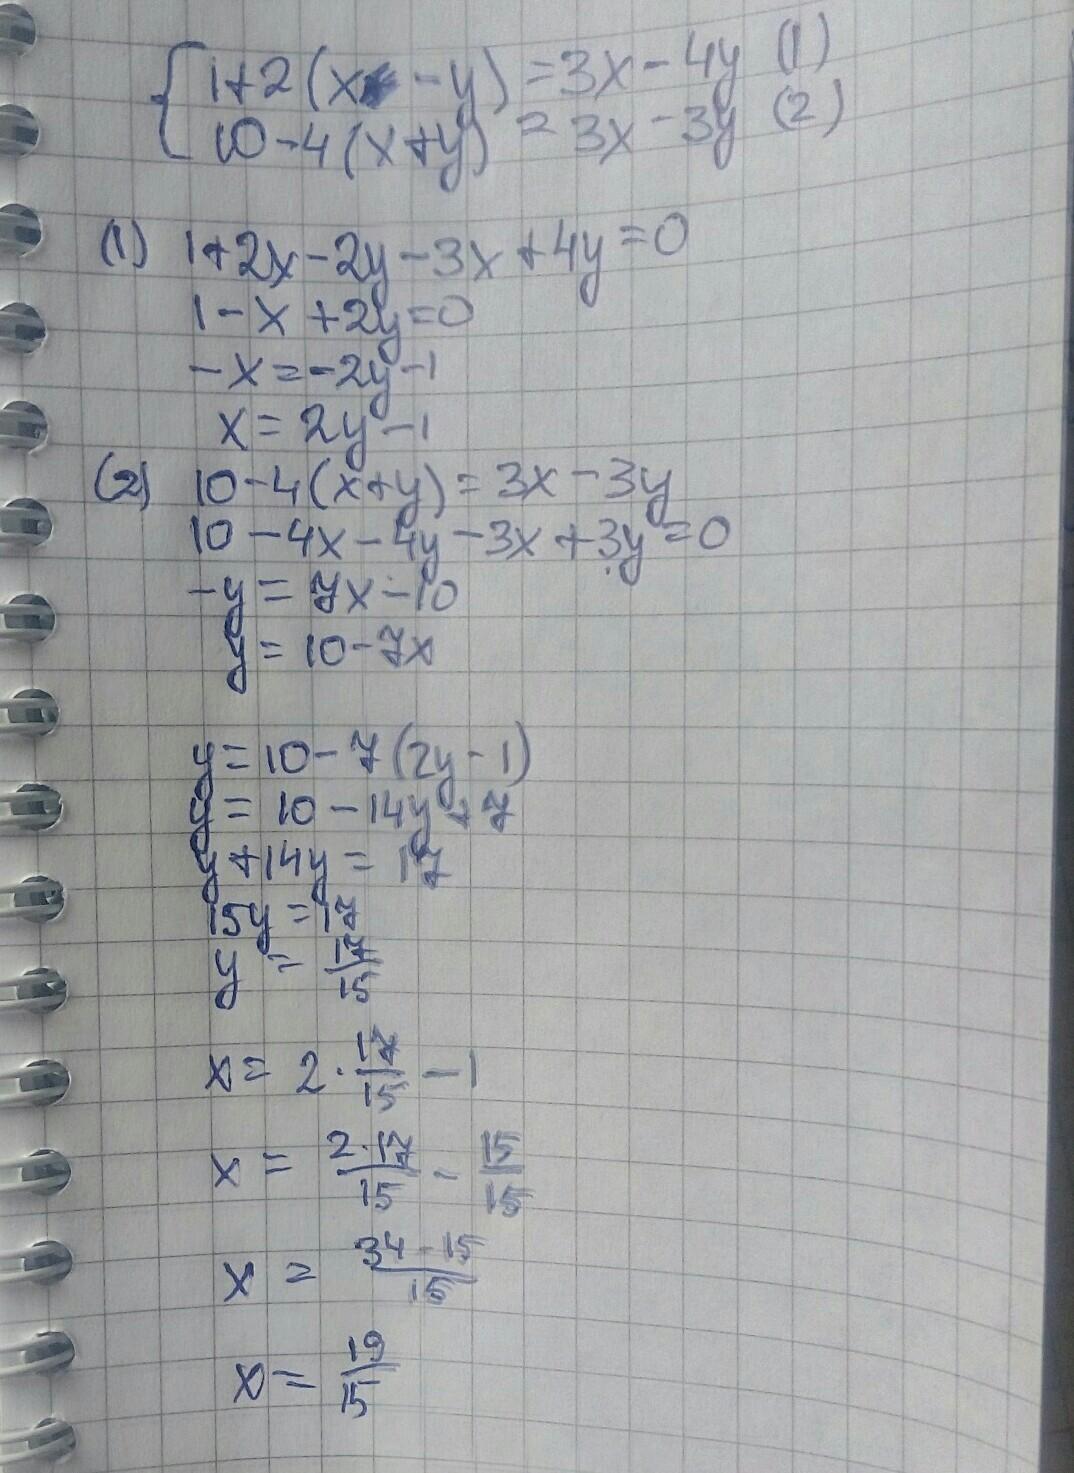 { 1+2(x-y) = 3x-4y (1)
10-4(x+y) = 3x-3y (2)
(1) 1+2x-2y-3x+4y=0
1-x+2y=0
-x=-2y-1
x=2y-1
(2) 10-4(x+y)=3x-3y
10-4x-4y-3x+3y=0
-y=7x-10
y=10-7x
y=10-7(2y-1)
y=10-14y+7
y+14y=17
15y=17
y=17/15
x=2·17/15-1
x=2·17/15-15/15
x=34-15/15
x=19/15